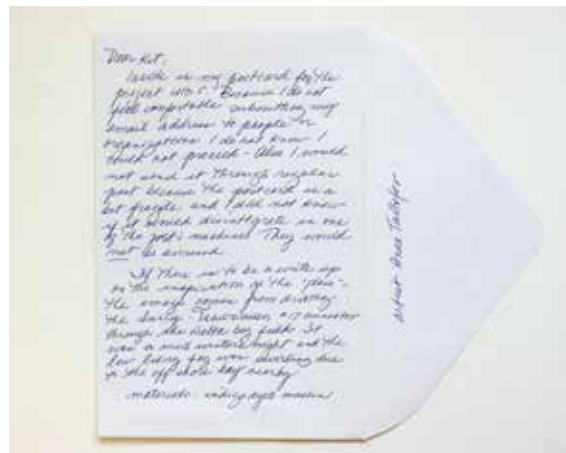 Dear Kit.
Inside is my postcard for the
project Because I do not
feel comfortable submitting my
email address to people or
organizations I do not know I
could not proceed - Also I would
not send it through regular
post because the postcard is a
bit fragile and I did not know
if it would disintegrate in one
of the post's machines They would
not be amused
If there is to be a write up
on the inspiration of the
the image comes from driving
the Surrey - Tsawwassen #17
through the bog It
was a mid winter's night and the
low lying fog was swirling due
to the off shore bay nearby
materials - indigo dyed muslin
artist